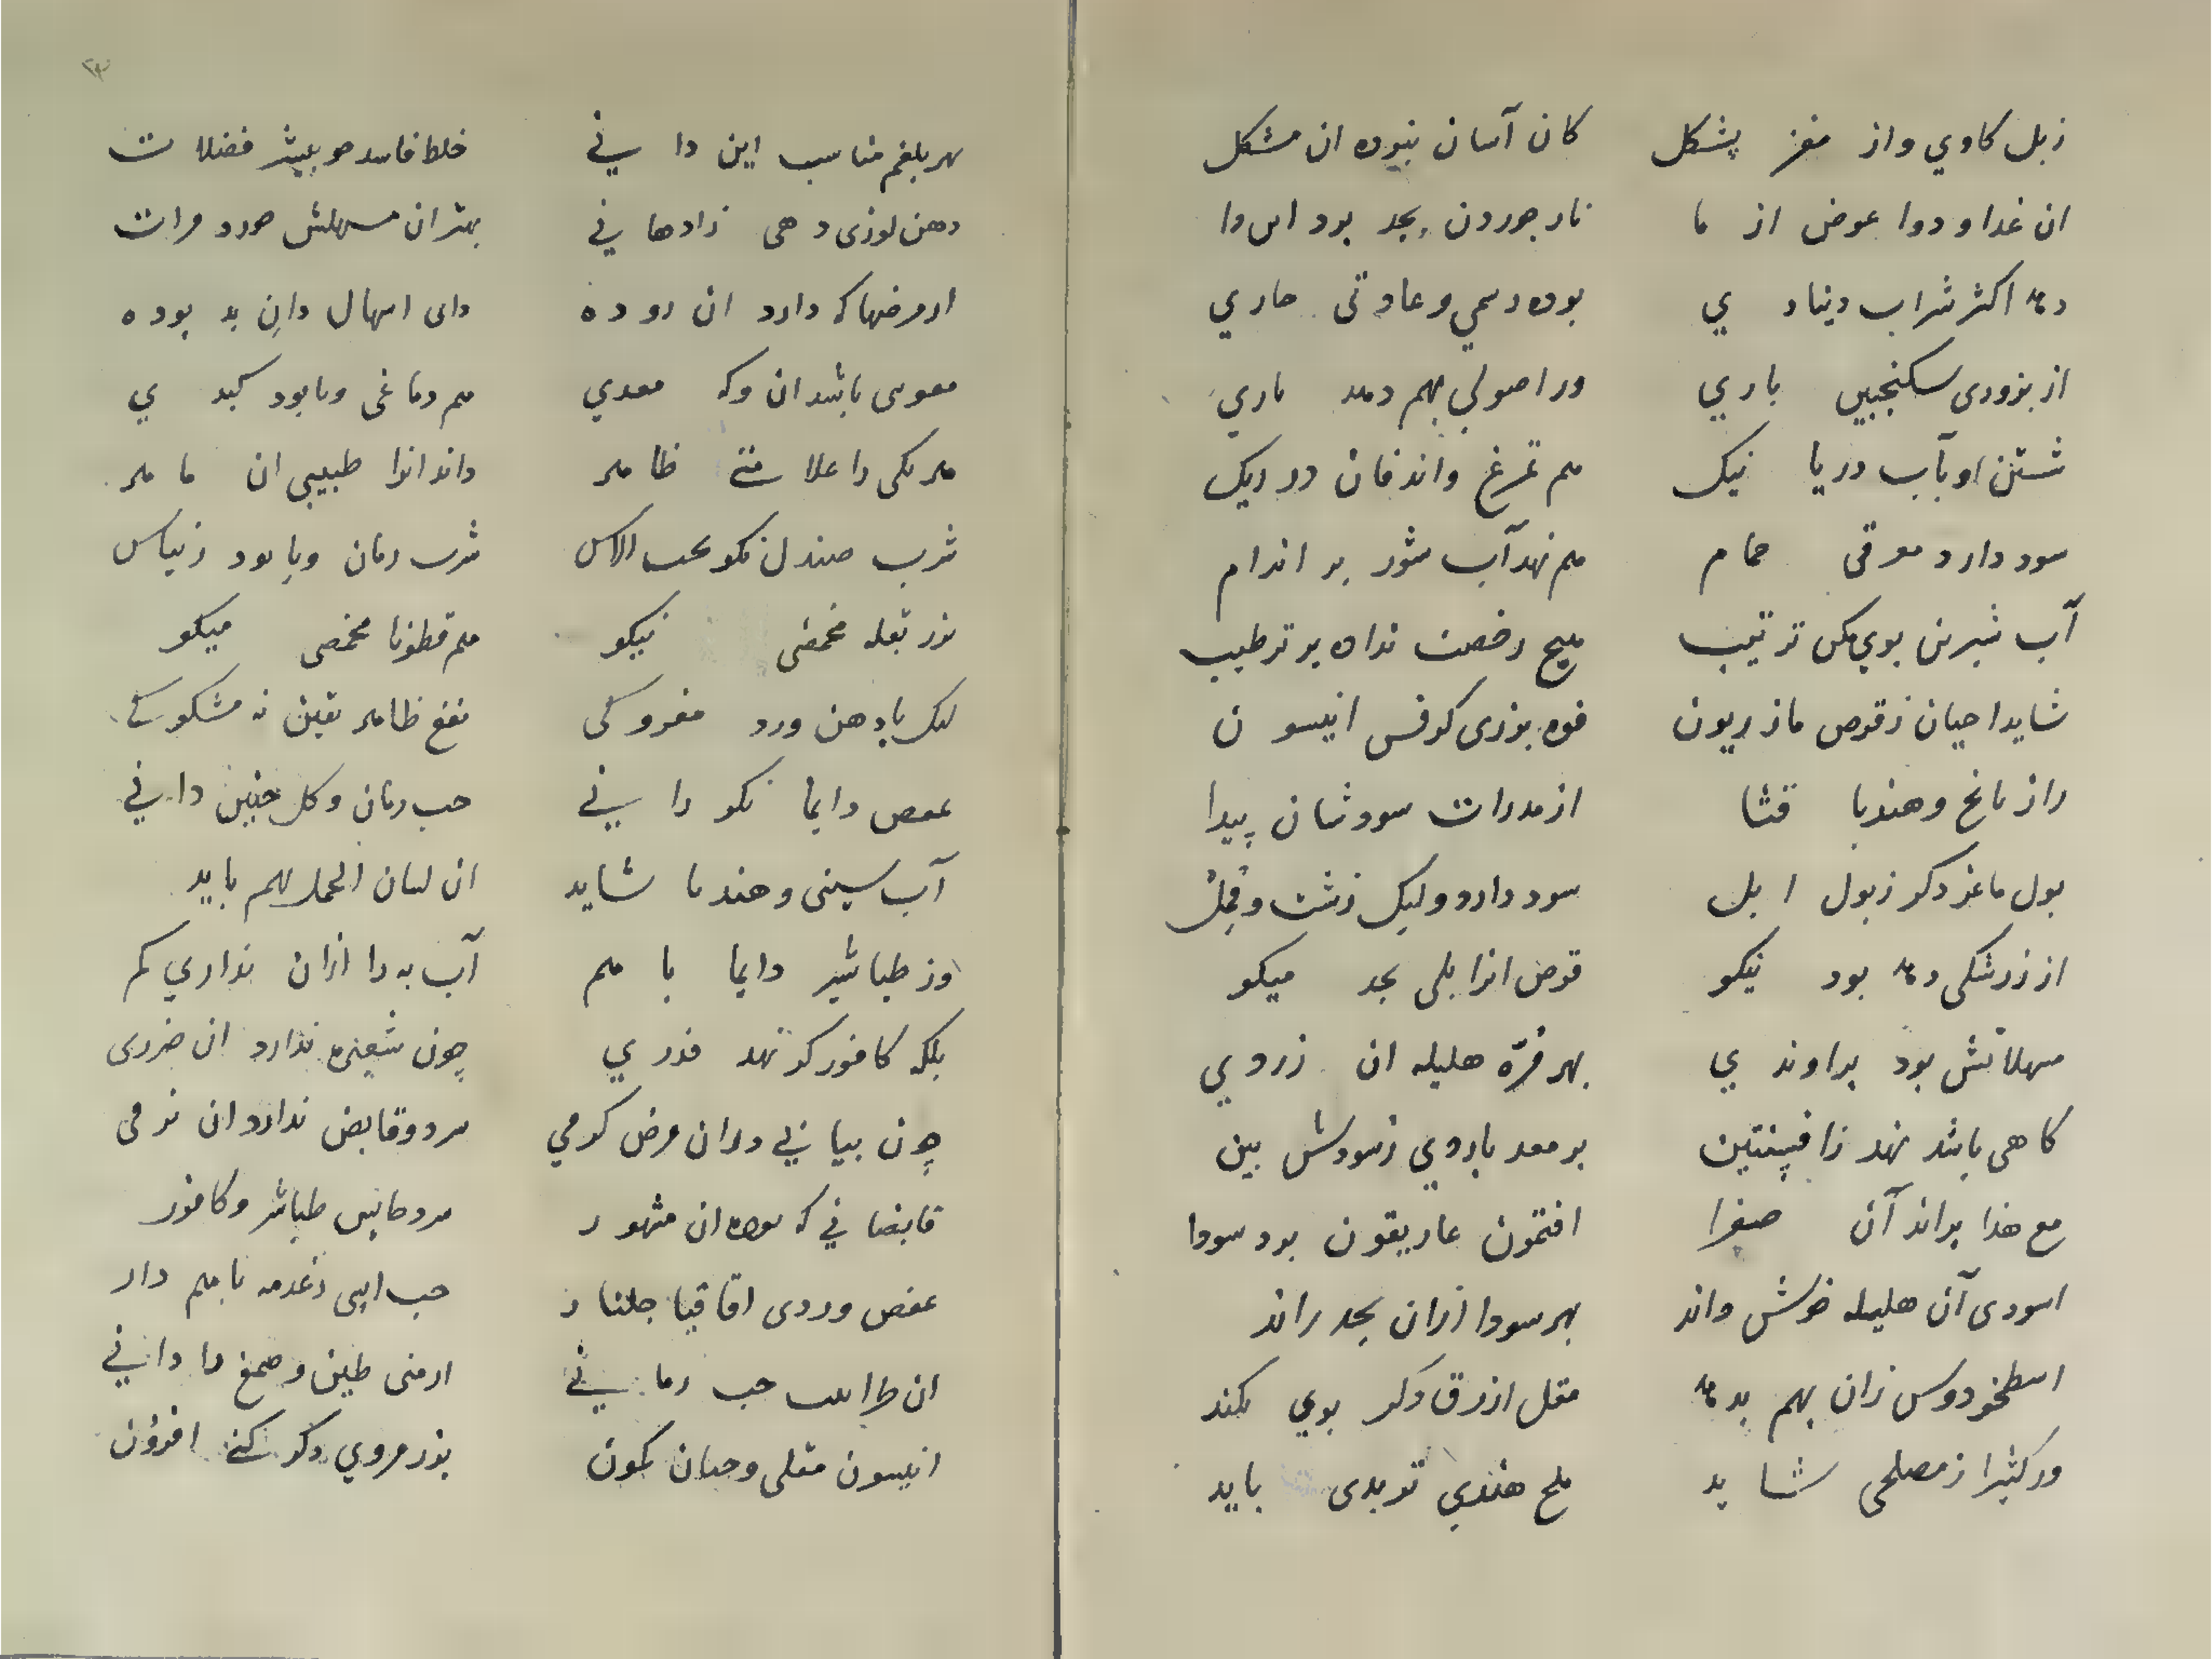 زبل كاوي واز مغز پشكل کان آسان نبوده ان مشکل
ان غدا و دوا عوض از ما نار جوردن بجد بود اس دا
ده اکثر شراب دینا د ي بوده رسمي و عادتی جاري
از بزوری سكنجبین باري ور اصولي بهم دهد ماري
شستن او بآب دریا نیک هم تمرغ واندفان در ریک
سود دارد معرقی حمام هم نهد آب شور بر اندام
آب شیرین بوي مکن ترتیب هیچ رخصت نداده بر ترطیب
شاید احیان ز قرص مازریون فوه بزری کرفس انیسو ن
راز یانج و هندبا قثا از مدرات سود شان پیدا
بول ماعز دکر زبول ا بل سود دارد ولیک زشت و قجل
از زرشکی ده بود نیکو قرص انرا بلی بجد میکو
مسهلاتش بود براوند ي بهر فرّه هلیله ان زردي
کاهی باشد نهد زافسنتین بر معد باردي ز سودش بین
مع هذا براند آن صفرا افتمون عاریقون برد سودا
اسودی آن هلیله خوش داند بهر سودا ازان بجد راند
اسطخودوس زان بهم بده مقل ازرق دکر بوي بکند
ور کثیرا ز مصلحی شا ید ملح هندي تربدی باید
بهر بلغم مناسب این دا ني خلط فاسد جو بیشر فضلا ت
دهن لوزی دهی زادها ني بهتر ان مسهلش جورد مرات
از مرضها که دارد ان روده دای اسهال دانِ بد بوده
معوی باشد ان وکه معدي هم دماغی ویا بود کبد ي
هر یکی را علا متے ظا هر داند انرا طبیبی ان ما هر
شرب صندل نکو بحب الاس شرب رمان ویا بود زنیاس
بزر بقله محمص نیکو هم قطونا محمص میکو
لیک با دهن ورد مفرو کی نفع ظاهر یقین نه مشکو کے
عفص دایما نکو دا ني حب رمان و کل جنین داني
آب سینی و هندبا شاید ان لسان الحمل بهم باید
وز طباشیر دایما با هم آب به را ازان نداري کم
بلکه کافور کر نهد قدر ي چون شعیره ندارد ان ضرری
چون بیابي دران مرض کرمي سرد و قابض ندارد ان نرمی
قابضا ني که بوده ان مشهو ر سرد و حابس طباشر و کافور
عفص وردی اقاقیا جلنا ر حب اسی زغدمه باهم دار
ان طراثث حب رما ني ارمنی طین و صمغ را داني
انیسون مقلی وجبان کمون بزر مروي دکر کنے افزون